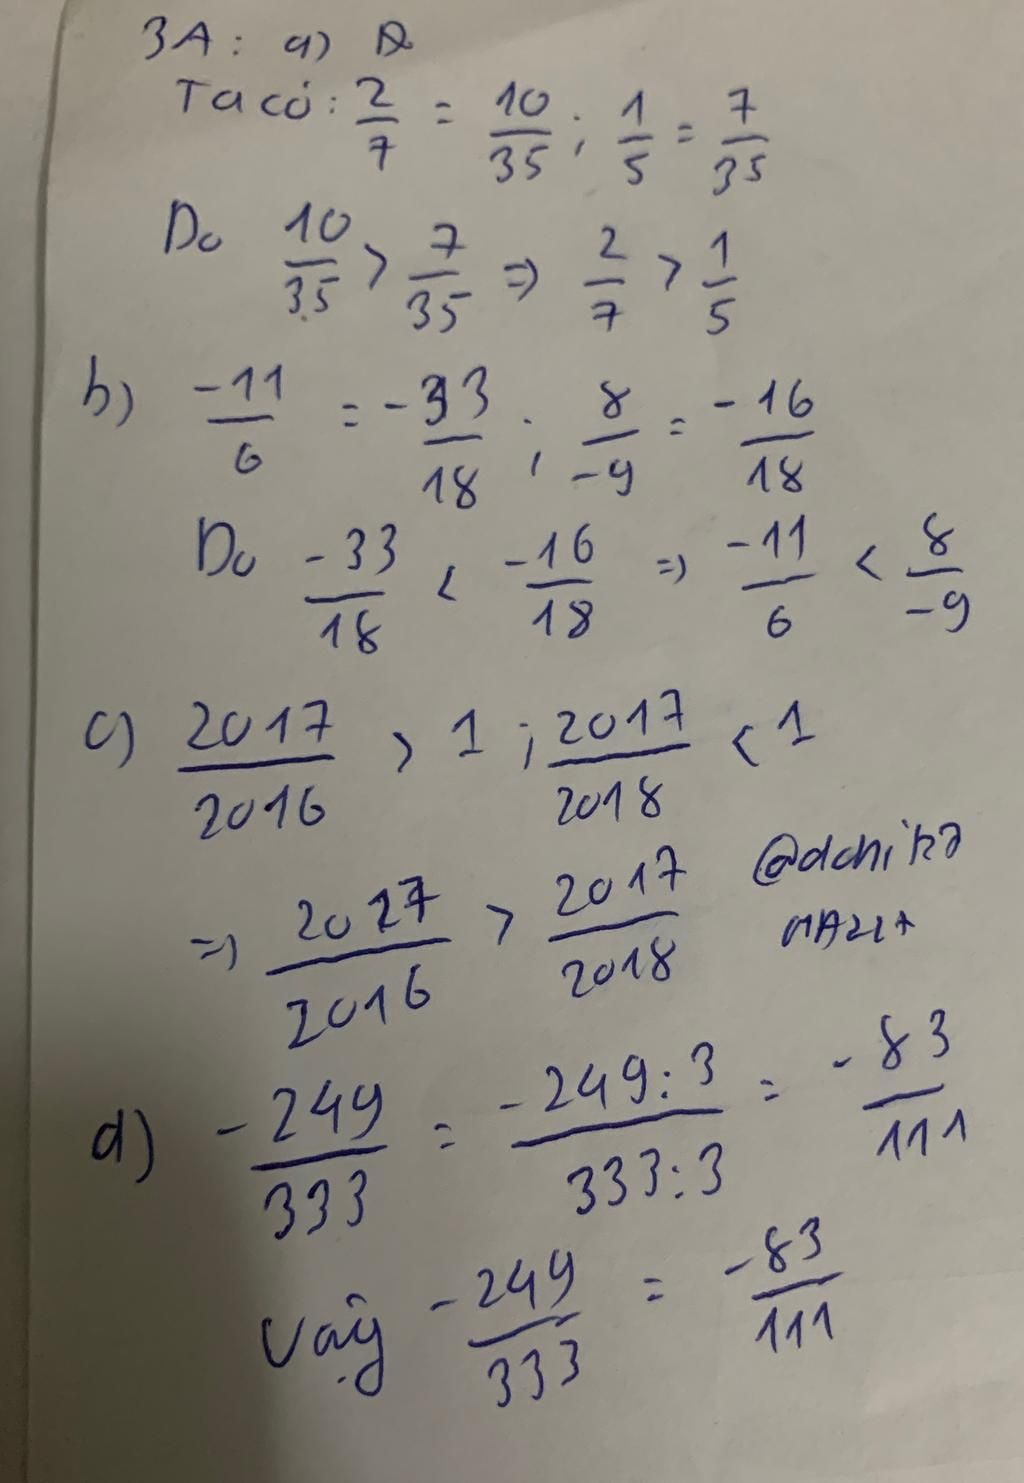 3A: a)
Ta có: 2/7 = 10/35 ; 1/5 = 7/35
Do 10/35 > 7/35 => 2/7 > 1/5
b) -11/6 = -33/18 ; 8/-9 = -16/18
Do -33/18 < -16/18 => -11/6 < 8/-9
c) 2017/2016 > 1 ; 2017/2018 < 1
=> 2017/2016 > 2017/2018
d) -249/333 = -249:3/333:3 = -83/111
Vậy -249/333 = -83/111